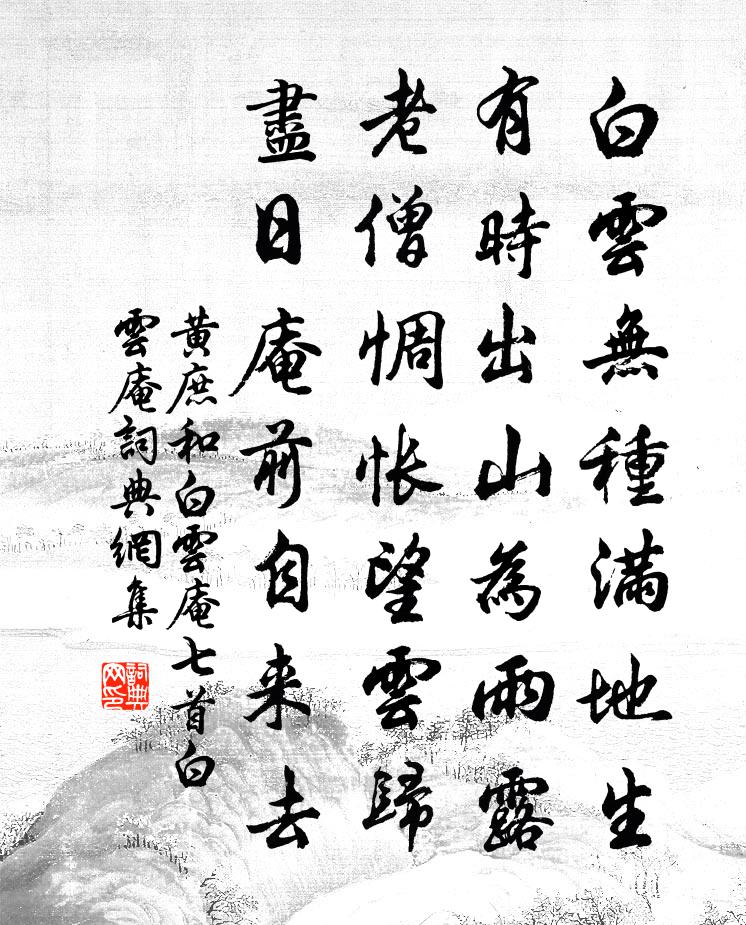 白雲無種滿地生
有時出山為雨露
老僧惆悵望雲歸
盡日庵前自来去
黃庶和白雲庵七首白
雲庵詞典網集
詞典
网印